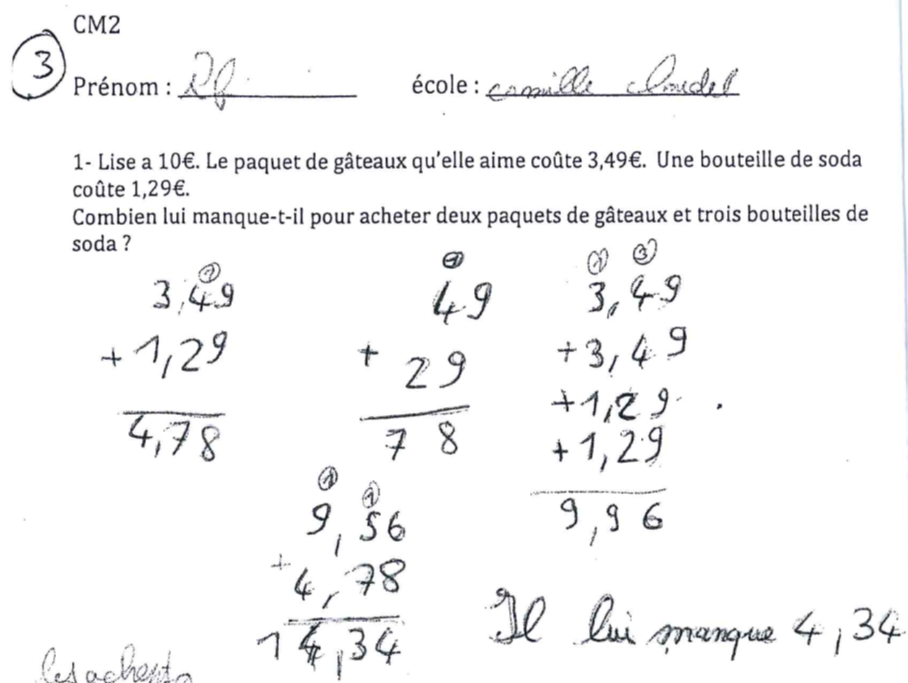 CM2
3
Prénom :
école : camille claudel
1- Lise a 10€. Le paquet de gâteaux qu'elle aime coûte 3,49€. Une bouteille de soda
coûte 1,29€.
Combien lui manque-t-il pour acheter deux paquets de gâteaux et trois bouteilles de
soda ?
1
3,49
+ 1,29
4,78
1
49
+ 29
78
1 3
3,49
+3,49
+1,29
+1,29
9,96
1 1
9,56
+ 4,78
14,34
Il lui manque 4,34